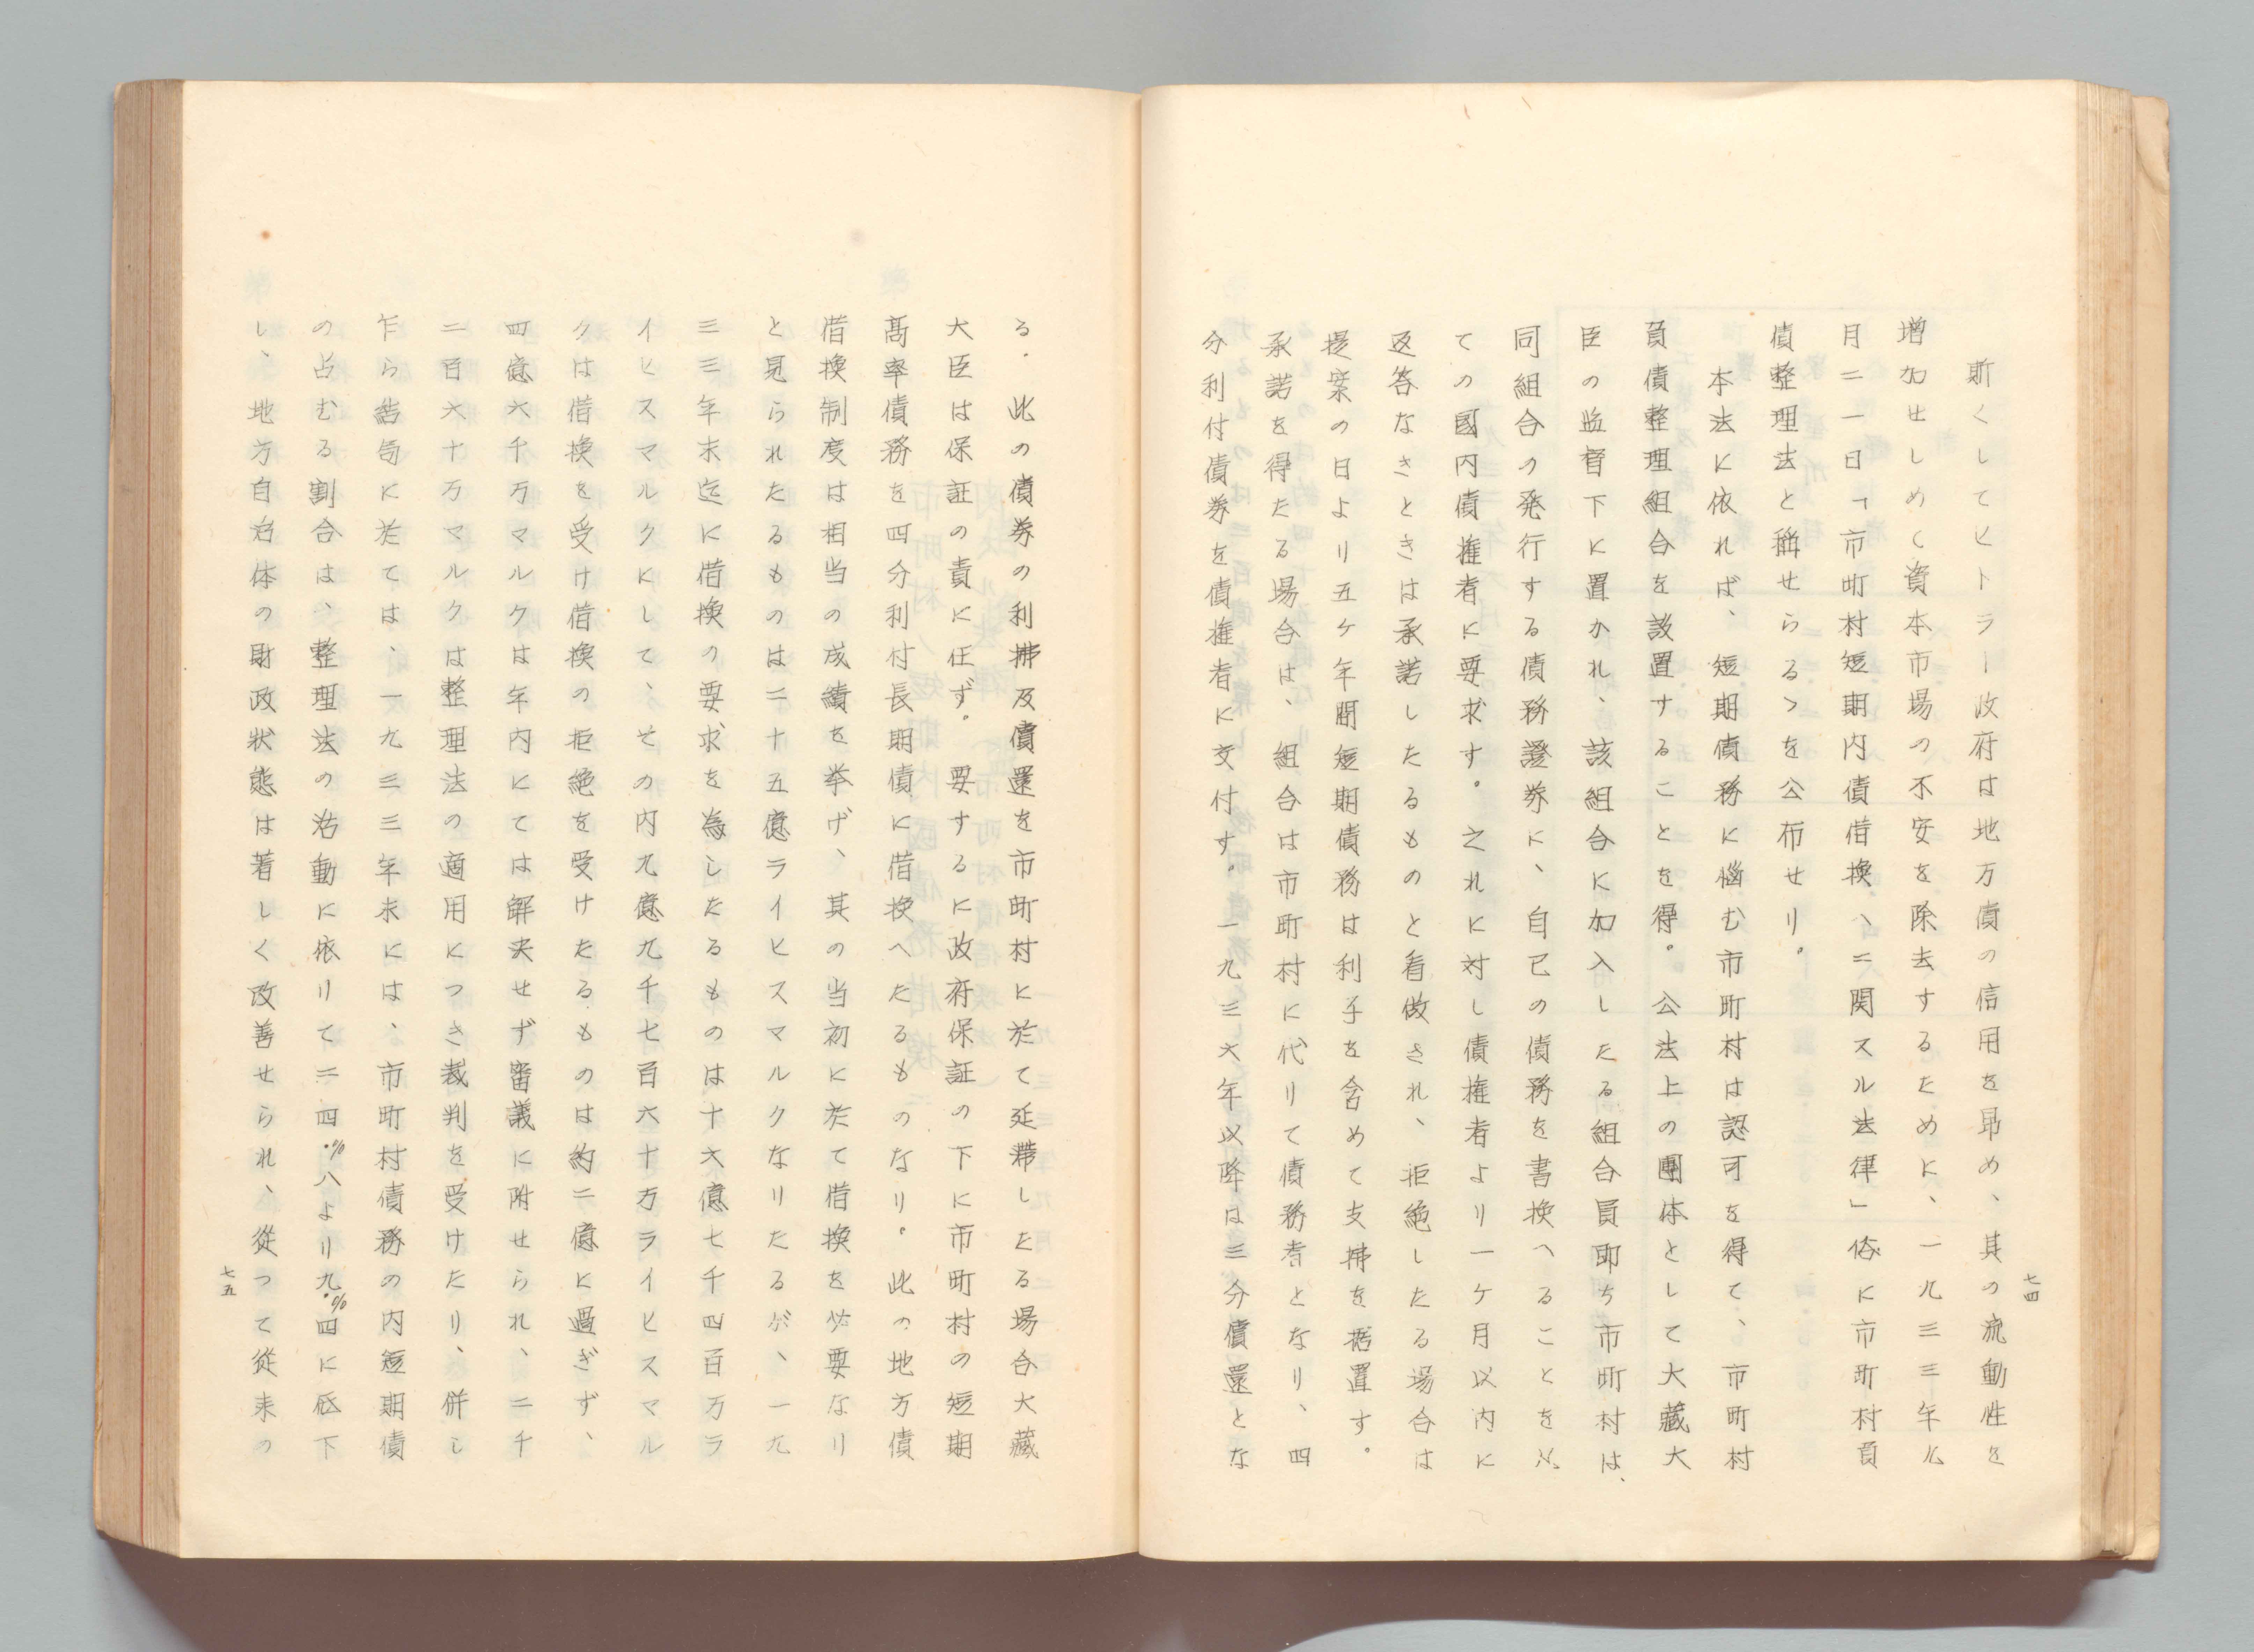 七四
斯くしてヒトラー政府は地方債の信用を昂め、其の流動性を
増加せしめく資本市場の不安を除去するために、一九三三年九
月二一日「市町村短期内債借換ヘニ関スル法律」俗に市町村負
債整理法と稱せらるゝを公布せり。
本法に依れば、短期債務に悩む市町村は認可を得て、市町村
負債整理組合を設置することを得。公法上の團体として大藏大
臣の監督下に置かれ、該組合に加入したる組合員即ち市町村は、
同組合の発行する債務證券に、自己の債務を書換へることを以
ての國内債権者に要求す。之れに対し債権者より一ケ月以内に
返答なきときは承諾したるものと看做され、拒絶したる場合は
提案の日より五ケ年間短期債務は利子を含めて支拂を据置す。
承諾を得たる場合は、組合は市町村に代りて債務者となり、四
分利付債券を債権者に交付す。一九三六年以降は三分債還とな
る。此の債券の利拂及債還を市町村に於て延滞したる場合大藏
大臣は保証の責に任ず。要するに政府保証の下に市町村の短期
髙率債務を四分利付長期債に借換へたるものなり。此の地方債
借換制度は相当の成績を挙げ、其の当初に於て借換を必要なり
と見られたるものは二十五億ライヒスマルクなりたるが、一九
三三年末迄に借換の要求を為したるものは十六億七千四百万ラ
イヒスマルクにして、その内九億九千七百六十万ライヒスマル
クは借換を受け借換の拒絶を受けたるものは約二億に過ぎず、
四億六千万マルクは年内にては解決せず審議に附せられ、二千
二百六十万マルクは整理法の適用につき裁判を受けたり、併し
乍ら結句に於ては、一九三三年末には、市町村債務の内短期債
の占むる割合は、整理法の活動に依りて二四.%八より九.%四に低下
し、地方自治体の財政状態は着しく改善せられ、従つて従来の
七五